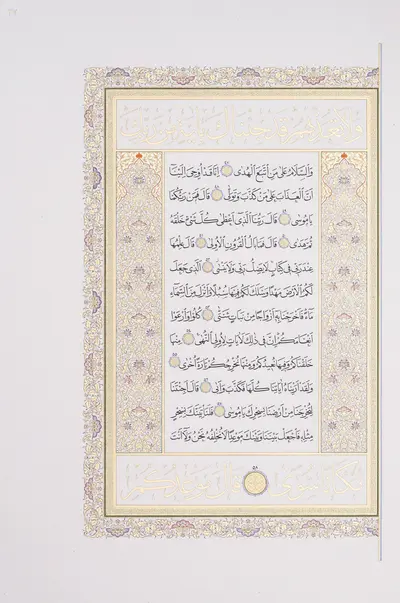 وَلَا تُعَذِّبْهُمْ قَدْ جِئْنَاكَ بِآيَةٍ مِنْ رَبِّكَ
وَالسَّلَامُ عَلَىٰ مَنِ اتَّبَعَ الْهُدَىٰ ٤٧ إِنَّا قَدْ أُوحِيَ إِلَيْنَا
أَنَّ الْعَذَابَ عَلَىٰ مَنْ كَذَّبَ وَتَوَلَّىٰ ٤٨ قَالَ فَمَنْ رَبُّكُمَا
يَا مُوسَىٰ ٤٩ قَالَ رَبُّنَا الَّذِي أَعْطَىٰ كُلَّ شَيْءٍ خَلْقَهُ
ثُمَّ هَدَىٰ ٥٠ قَالَ فَمَا بَالُ الْقُرُونِ الْأُولَىٰ ٥١ قَالَ عِلْمُهَا
عِنْدَ رَبِّي فِي كِتَابٍ لَا يَضِلُّ رَبِّي وَلَا يَنْسَىٰ ٥٢ الَّذِي جَعَلَ
لَكُمُ الْأَرْضَ مَهْدًا وَسَلَكَ لَكُمْ فِيهَا سُبُلًا وَأَنْزَلَ مِنَ السَّمَاءِ
مَاءً فَأَخْرَجْنَا بِهِ أَزْوَاجًا مِنْ نَبَاتٍ شَتَّىٰ ٥٣ كُلُوا وَارْعَوْا
أَنْعَامَكُمْ إِنَّ فِي ذَٰلِكَ لَآيَاتٍ لِأُولِي النُّهَىٰ ٥٤ مِنْهَا
خَلَقْنَاكُمْ وَفِيهَا نُعِيدُكُمْ وَمِنْهَا نُخْرِجُكُمْ تَارَةً أُخْرَىٰ ٥٥
وَلَقَدْ أَرَيْنَاهُ آيَاتِنَا كُلَّهَا فَكَذَّبَ وَأَبَىٰ ٥٦ قَالَ أَجِئْتَنَا
لِتُخْرِجَنَا مِنْ أَرْضِنَا بِسِحْرِكَ يَا مُوسَىٰ ٥٧ فَلَنَأْتِيَنَّكَ بِسِحْرٍ
مِثْلِهِ فَاجْعَلْ بَيْنَنَا وَبَيْنَكَ مَوْعِدًا لَا نُخْلِفُهُ نَحْنُ وَلَا أَنْتَ
مَكَانًا سُوًى ٥٨ قَالَ مَوْعِدُكُمْ